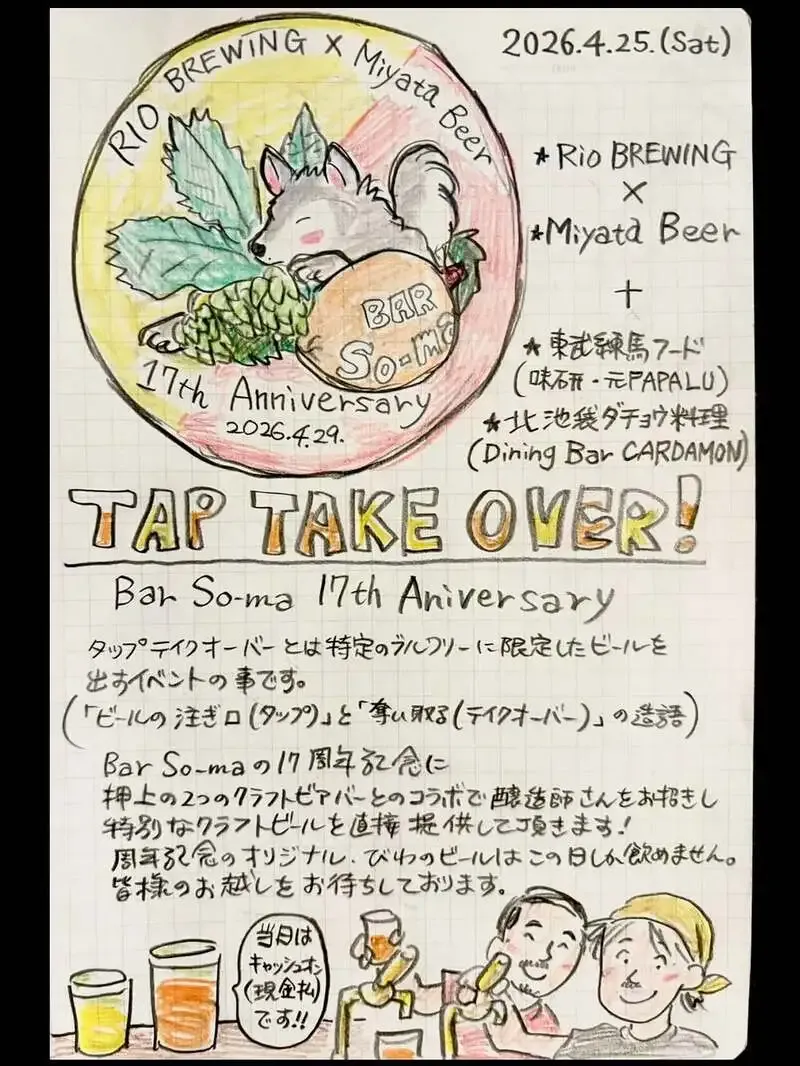 RIO BREWING X Miyata Beer
BAR
So-ma
17th Anniversary
2026.4.29.
2026.4.25.(Sat)
★Rio BREWING
×
★Miyata Beer
+
★東武練馬フード
(味研・元PAPALU)
★北池袋ダチョウ料理
(Dining Bar CARDAMON)
TAP TAKE OVER!
Bar So-ma 17th Aniversary
タップテイクオーバーとは特定のブルワリーに限定したビールを
出すイベントの事です。
(「ビールの注ぎ口(タップ)」と「奪い取る(テイクオーバー)」の造語)
Bar So-maの17周年記念に
押上の2つのクラフトビアバーとのコラボで醸造師さんをお招きし
特別なクラフトビールを直接提供して頂きます!
周年記念のオリジナル、びわのビールはこの日しか飲めません。
皆様のお越しをお待ちしております。
当日は
キャッシュオン
(現金払)
です!!